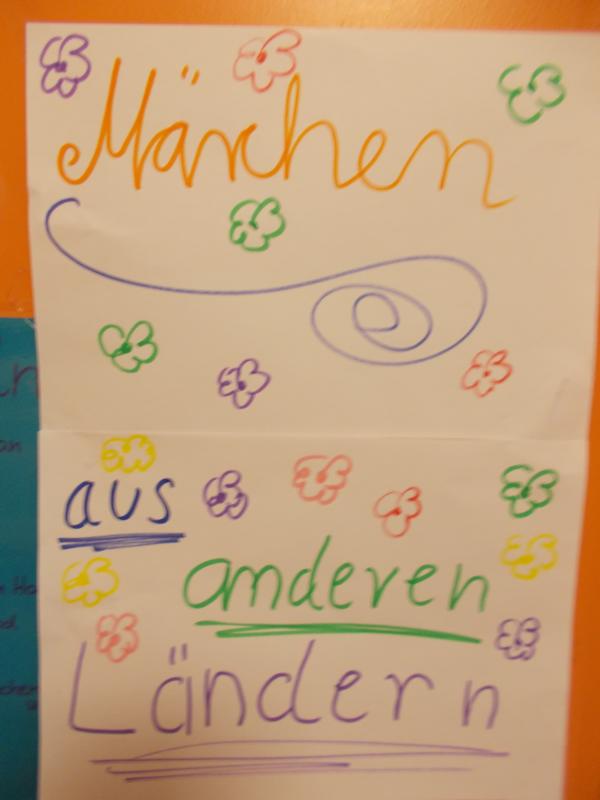 Märchen
aus
anderen
Ländern